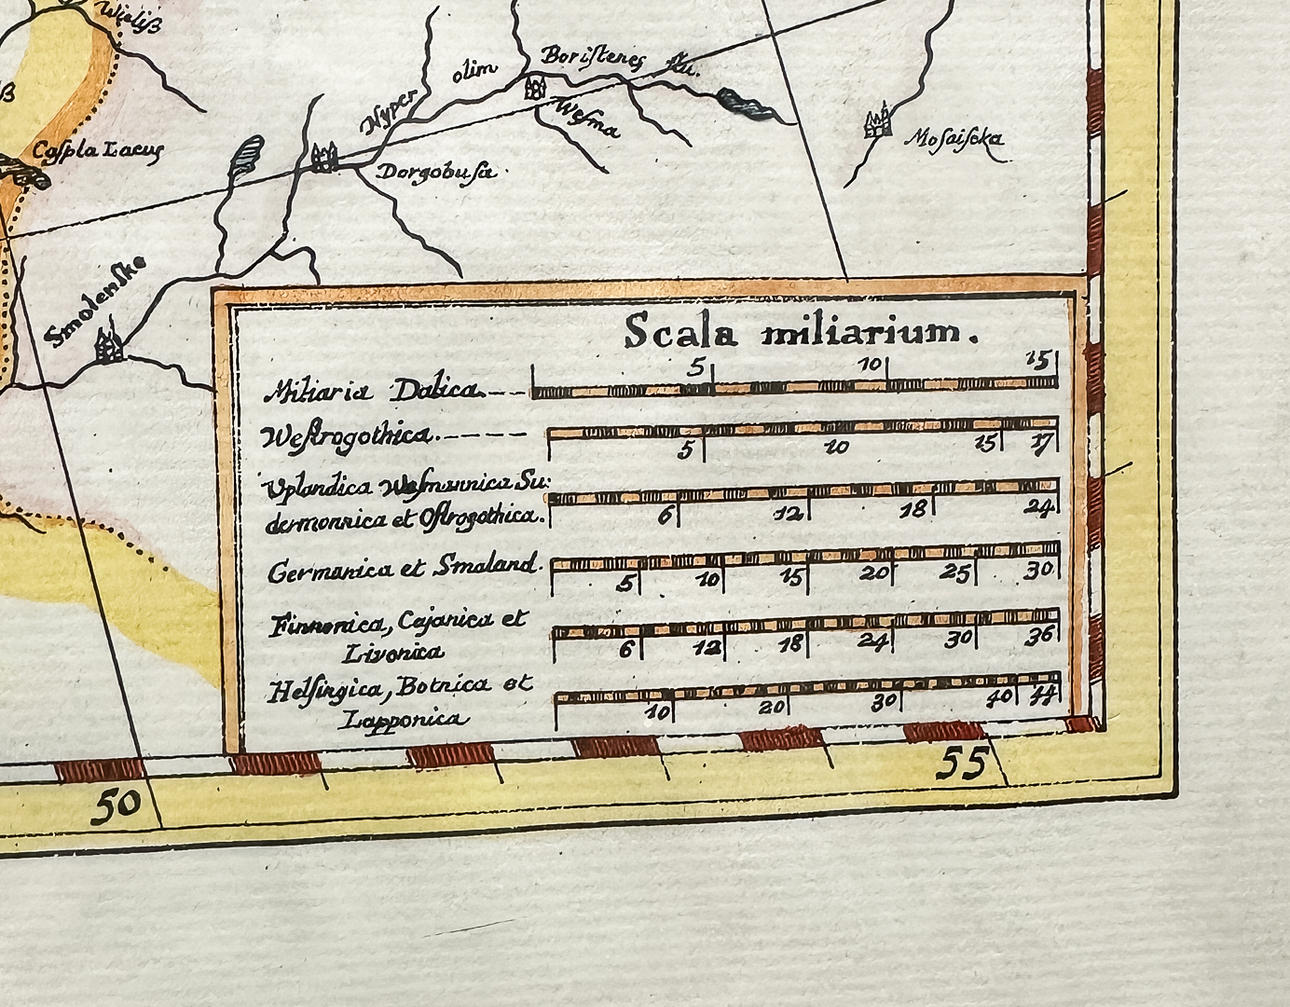 Wieliß
ß
Caspla Lacus
Nyper olim Boristenes flu.
Wesma
Dorgobusa.
Mosaiscka
Smolenske
Scala miliarium.
Miliaria Dalica.
5 10 15
Westrogothica.
5 10 15 17
Uplandica Wesmannica Su:
dermonnica et Ostrogothica.
6 12 18 24
Germanica et Smaland.
5 10 15 20 25 30
Finnonica, Cajanica et
Livonica
6 12 18 24 30 36
Helsingica, Botnica et
Lapponica
10 20 30 40 44
50 55